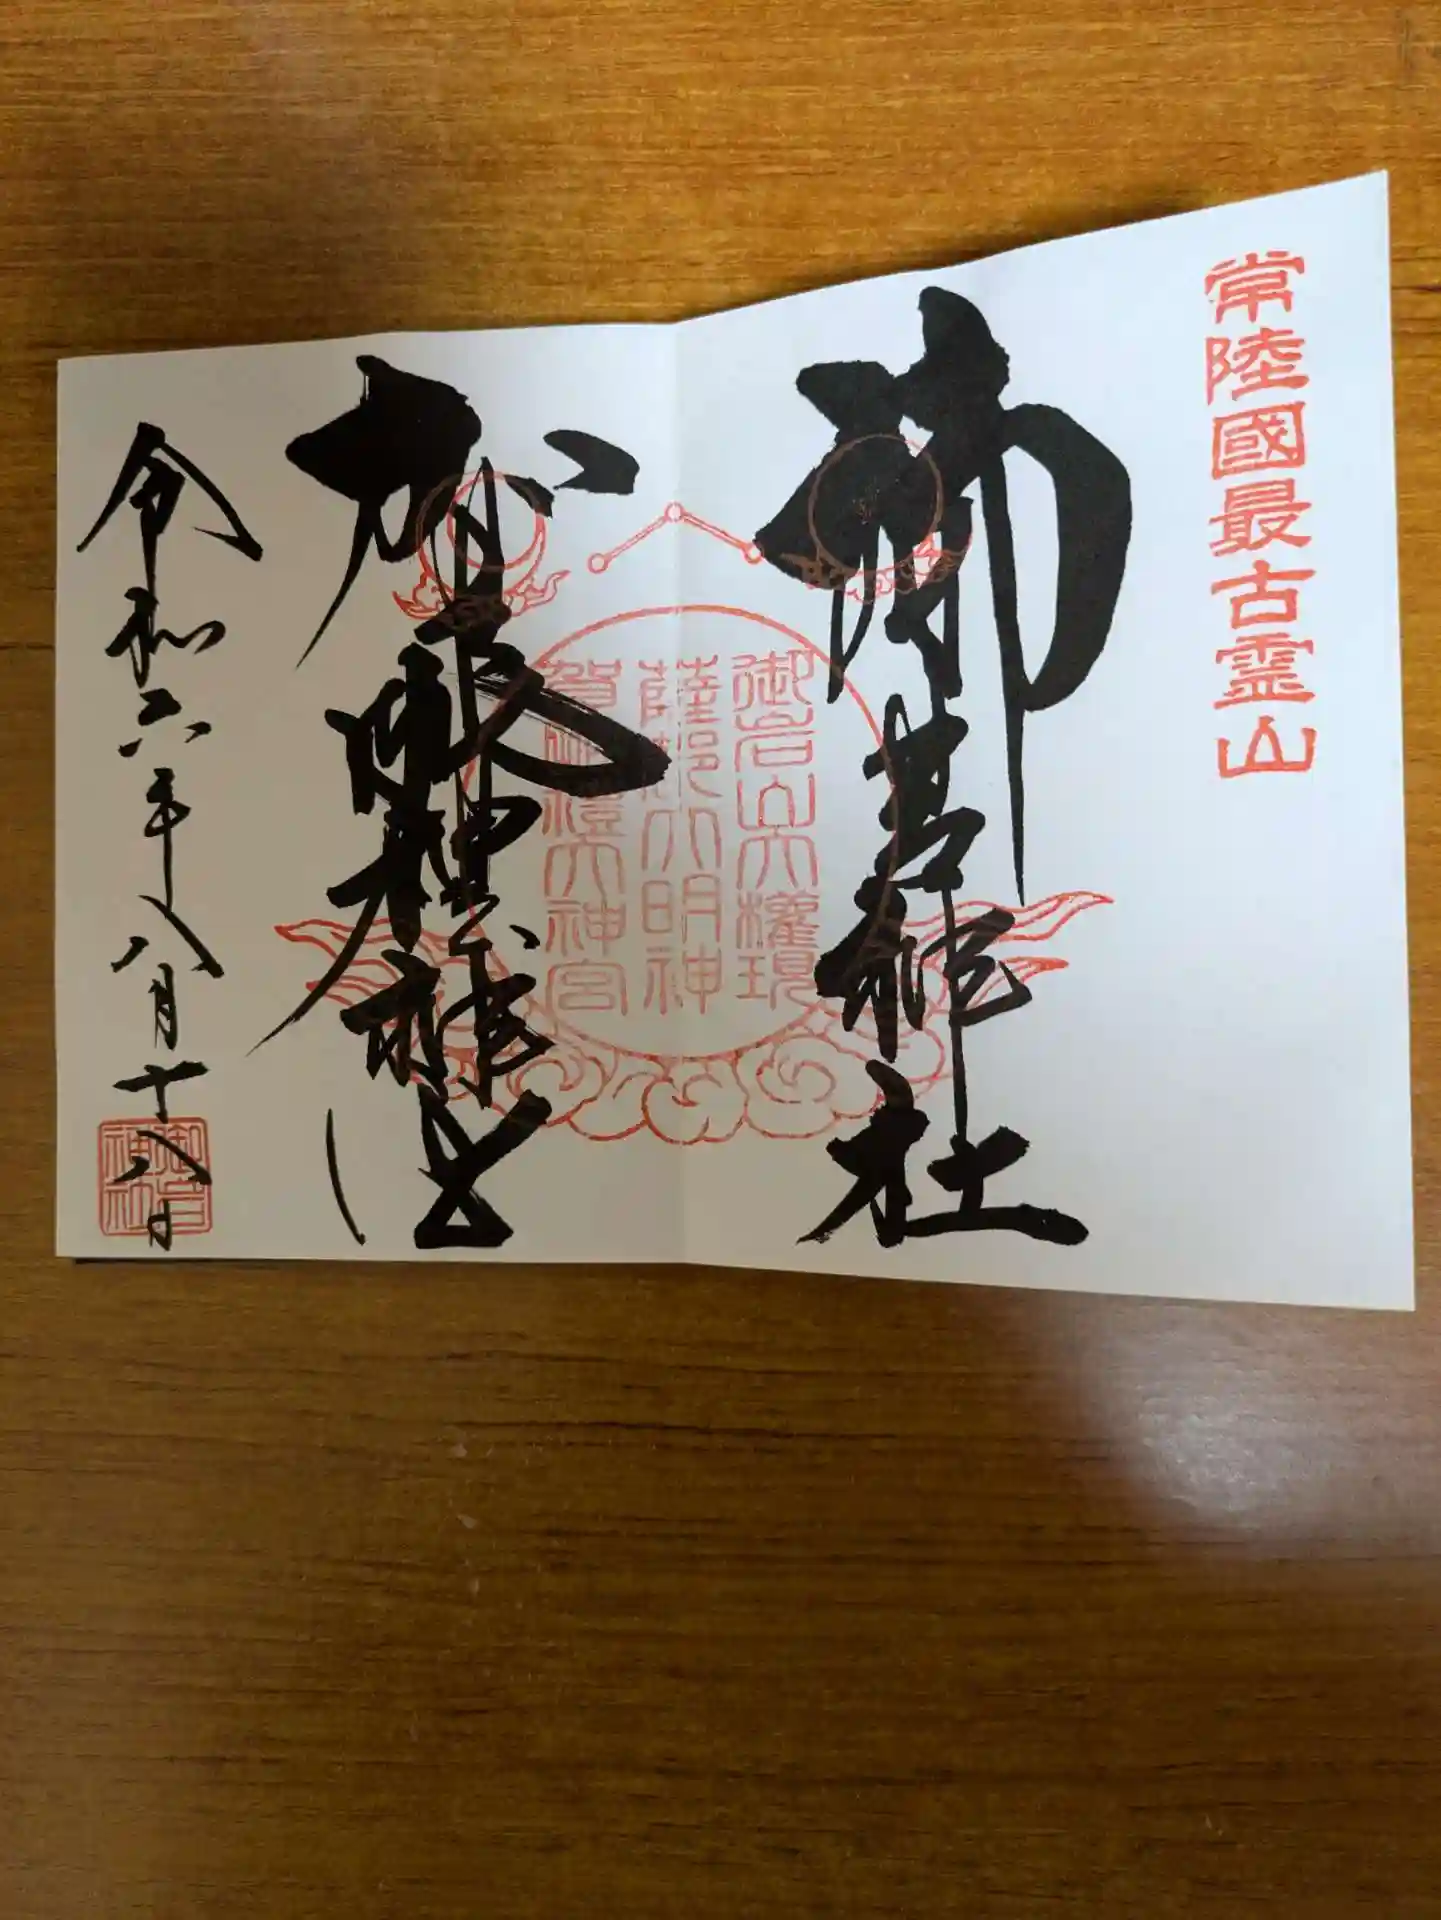 常陸國最古霊山
御岩神社
御岩山大權現
薩都大明神
賀毗禮大神宮
賀毗禮神宮
令和六年八月十八日
御岩
神社